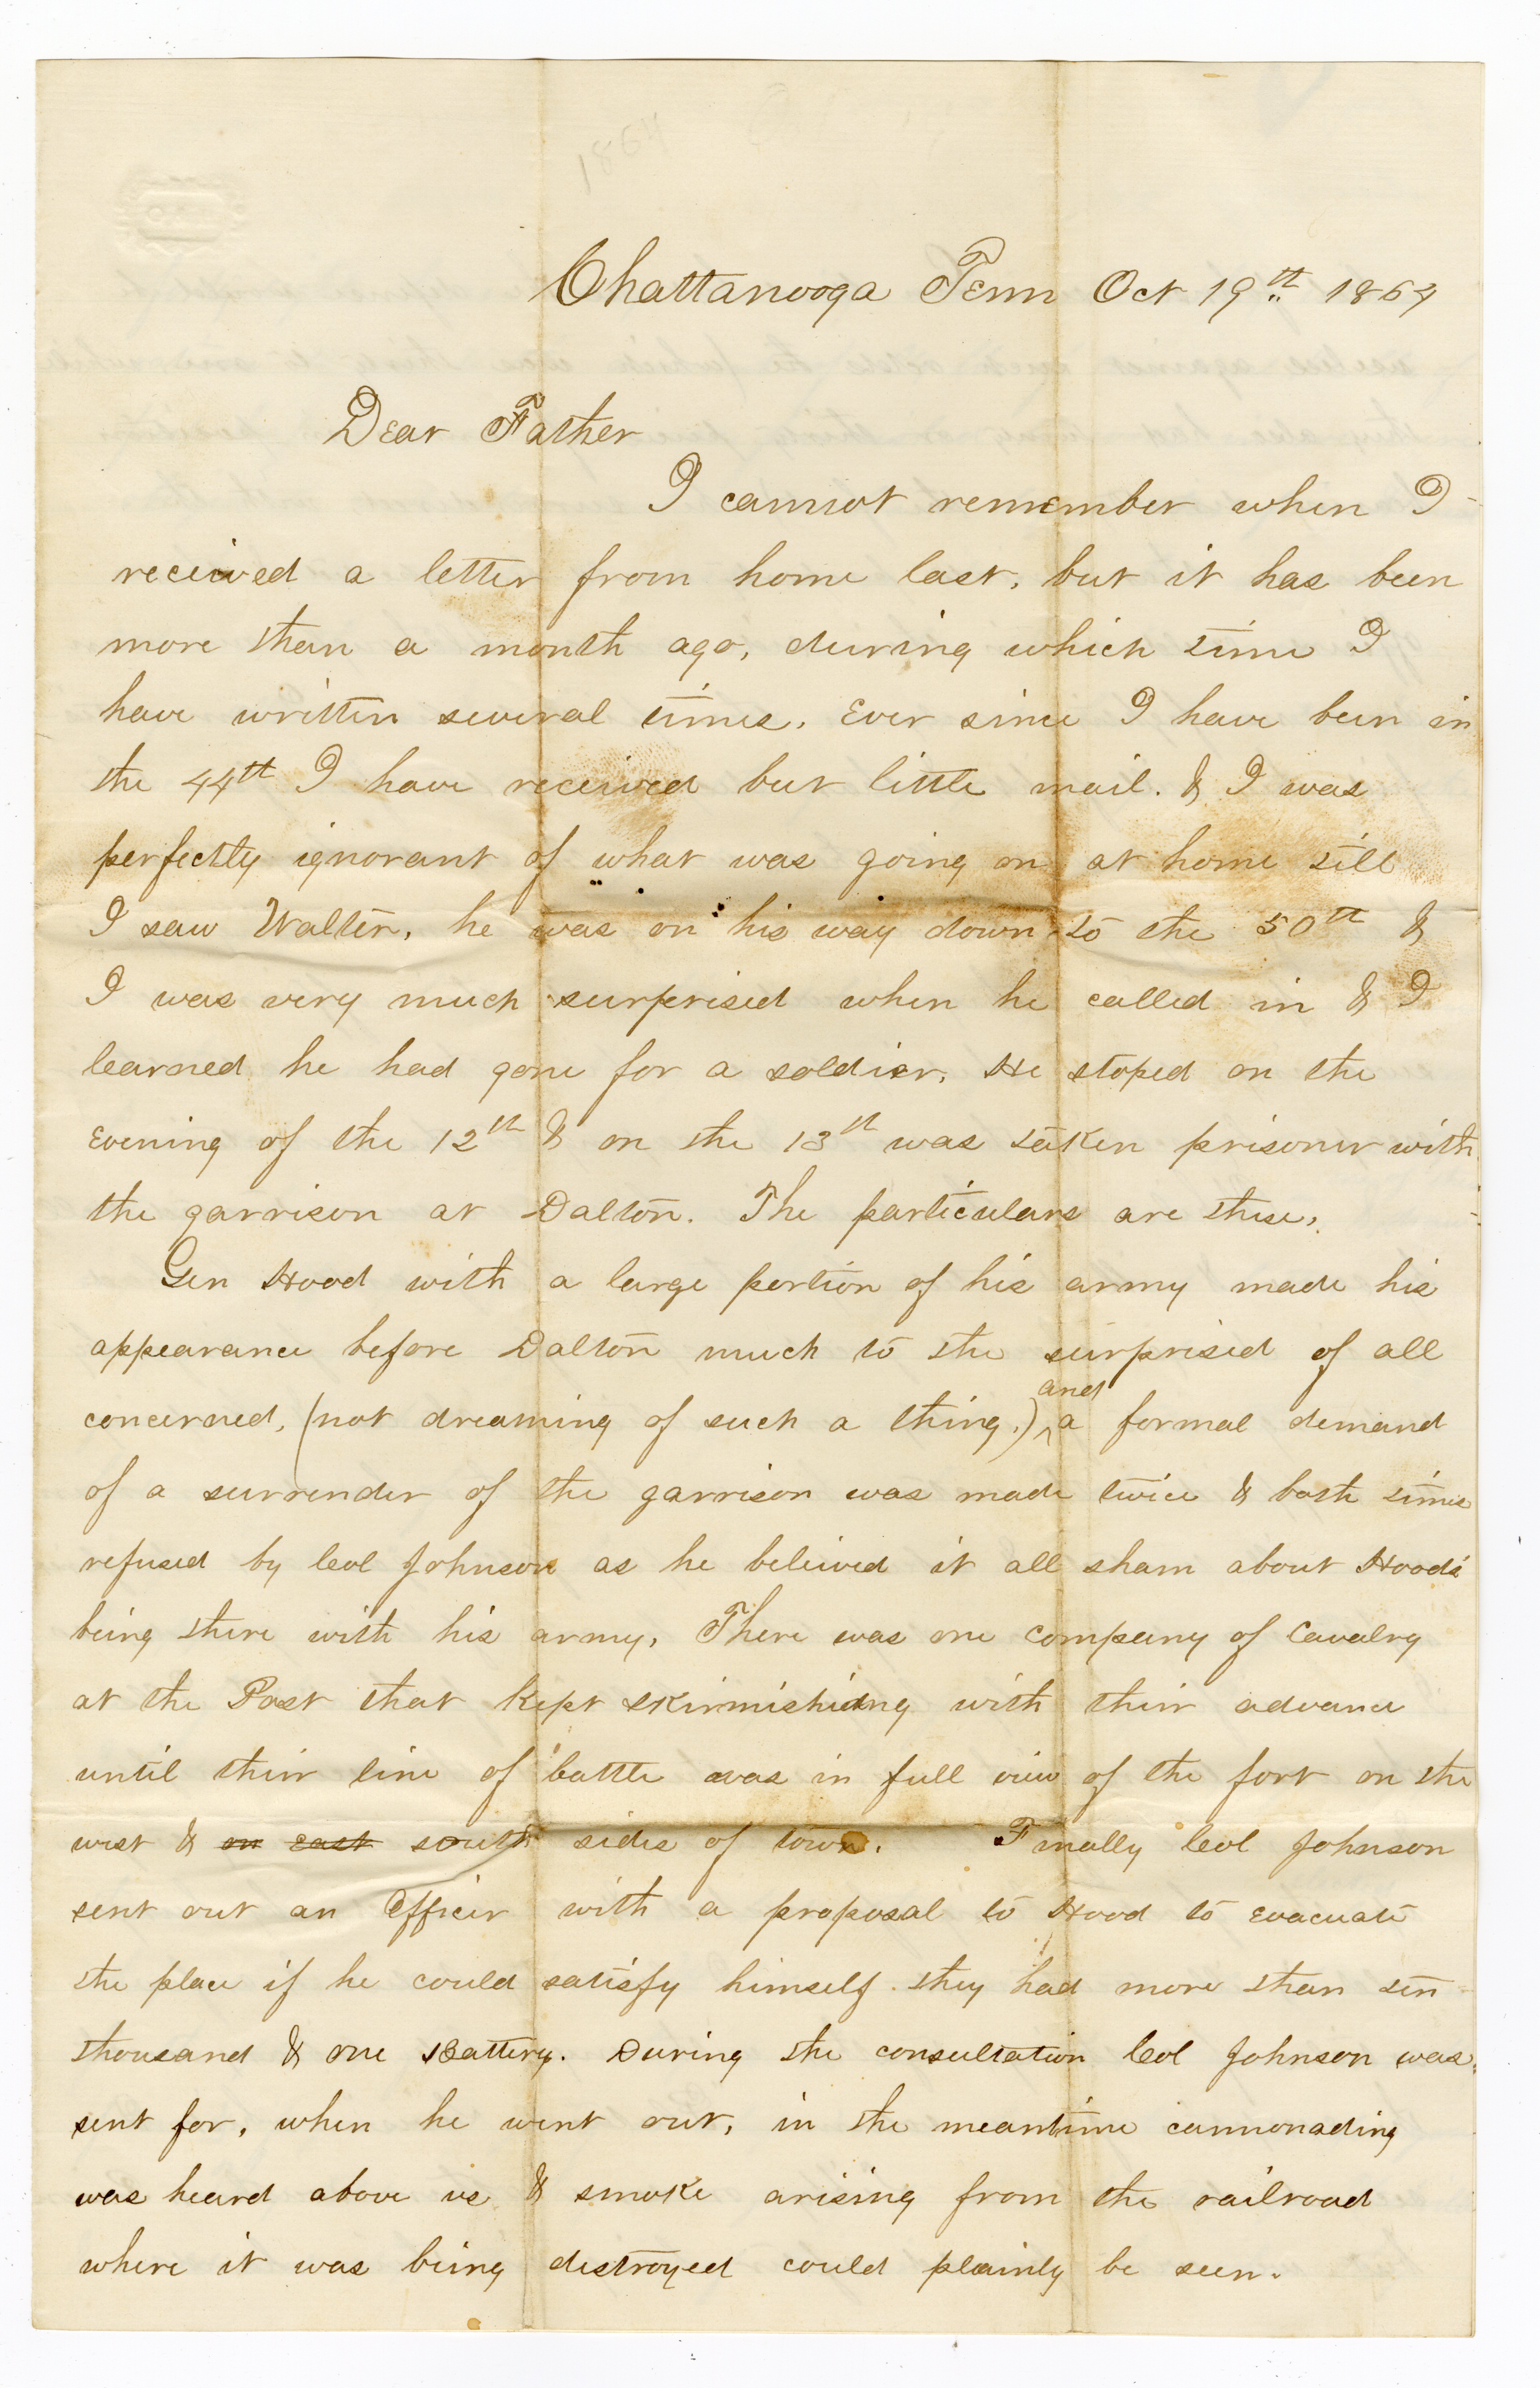 1864
Chattanooga Tenn Oct 19th 1864
Dear Father
I cannot remember when I
received a letter from home last, but it has been
more than a month ago, during which time I
have written several times. Ever since I have been in
the 44th I have received but little mail. & I was
perfectly ignorant of what was going on at home till
I saw Walter, he was on his way down to the 50th &
I was very much surprised when he called in & I
learned he had gone for a soldier. He stoped on the
evening of the 12th & on the 13th was taken prisoner with
the garrison at Dalton. The particulars are these,
Gen Hood with a large portion of his army made his
appearance before Dalton much to the surprised of all
concerned, (not dreaming of such a thing.) and a formal demand
of a surrender of the garrison was made twice & both times
refused by Col Johnson as he believed it all sham about Hood's
being there with his army, There was one company of Cavalry
at the Post that kept skirmishing with their advance
until their line of battle was in full view of the fort on the
west & on east south sides of town. Finally Col Johnson
sent out an Officer with a proposal to Hood to evacuate
the place if he could satisfy himself they had more than ten
thousand & one Battery. During the consultation Col Johnson was
sent for, when he went out, in the meantime cannonading
was heard above us & smoke arising from the railroad
where it was being destroyed could plainly be seen.